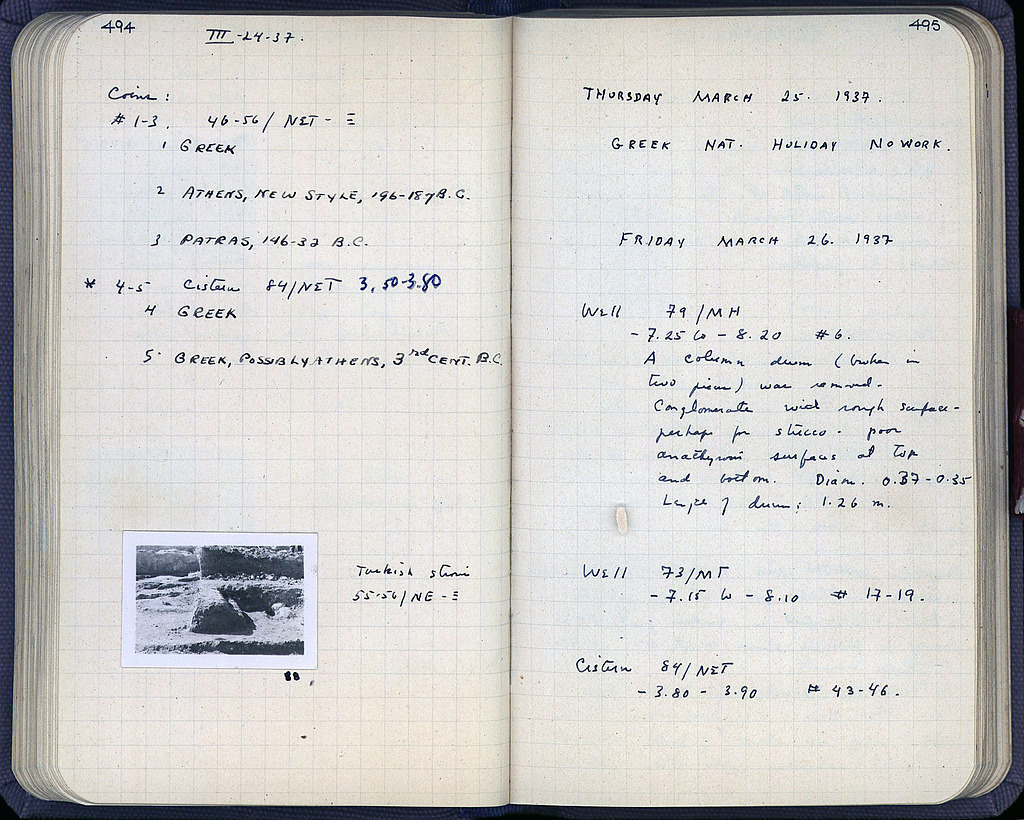 494
III-24-37.
Coins:
# 1-3. 46-56/ NET - Ξ
1 GREEK
2 ATHENS, NEW STYLE, 196-187 B.C.
3 PATRAS, 146-32 B.C.
* 4-5 Cistern 84/NET 3.50-3.80
4 GREEK
5 GREEK, POSSIBLY ATHENS, 3rd CENT. B.C.
Turkish
55-56/NE-Ξ
88
495
THURSDAY MARCH 25. 1937.
GREEK NAT. HOLIDAY NO WORK.
FRIDAY MARCH 26. 1937
Well 79/MH
-7.25 to -8.20 #6.
A column drum (broken in
two pieces) was removed.
Conglomerate with rough surface-
perhaps for stucco. poor
anathyrosis surfaces at top
and bottom. Diam. 0.37-0.35
drum: 1.26 m.
Well 73/MT
-7.15 to -8.10 # 17-19.
Cistern 84/NET
-3.80 - 3.90 # 43-46.